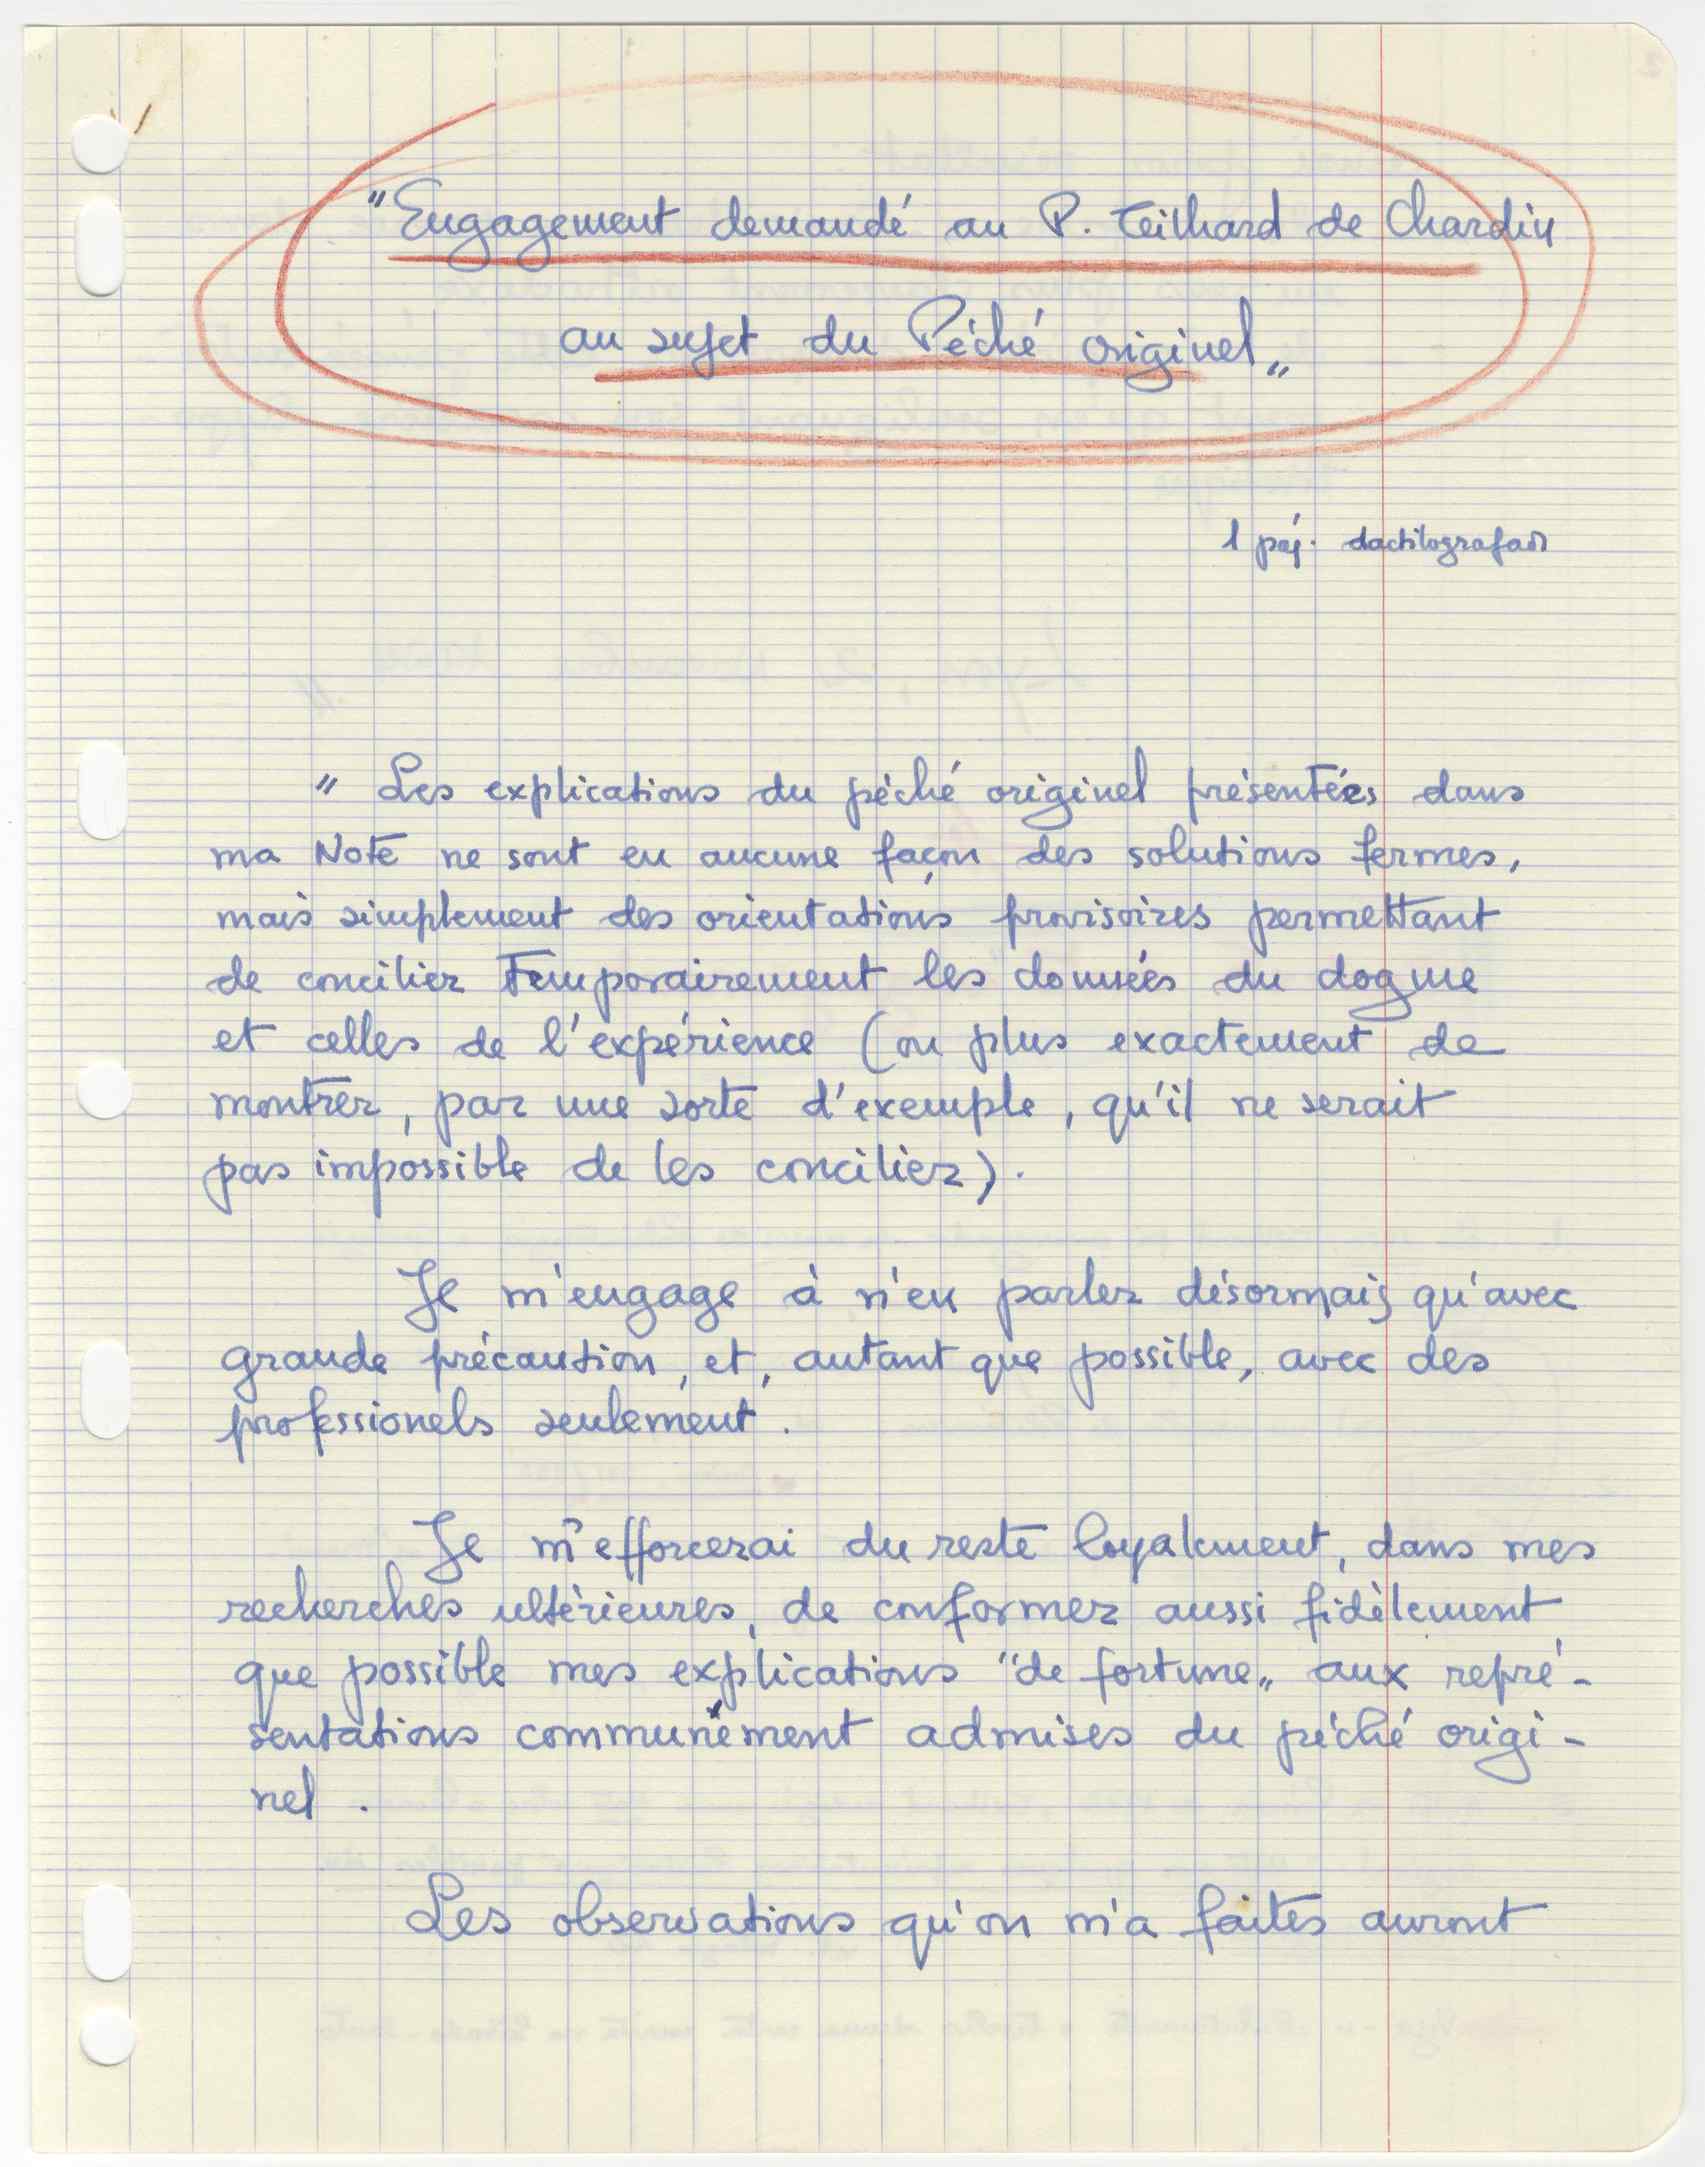 "Engagement demandé au P. Teilhard de Chardin
au sujet du Péché originel"
1 pág. dactilografada
" Les explications du péché originel présentées dans
ma Note ne sont en aucune façon des solutions fermes,
mais simplement des orientations provisoires permettant
de concilier temporairement les données du dogme
et celles de l'expérience (ou plus exactement de
montrer, par une sorte d'exemple, qu'il ne serait
pas impossible de les concilier).
Je m'engage à n'en parler désormais qu'avec
grande précaution, et, autant que possible, avec des
professionels seulement.
Je m'efforcerai du reste loyalement, dans mes
recherches ultérieures, de conformer aussi fidèlement
que possible mes explications "de fortune" aux repré-
sentations communément admises du péché origi-
nel.
Les observations qu'on m'a faites auront